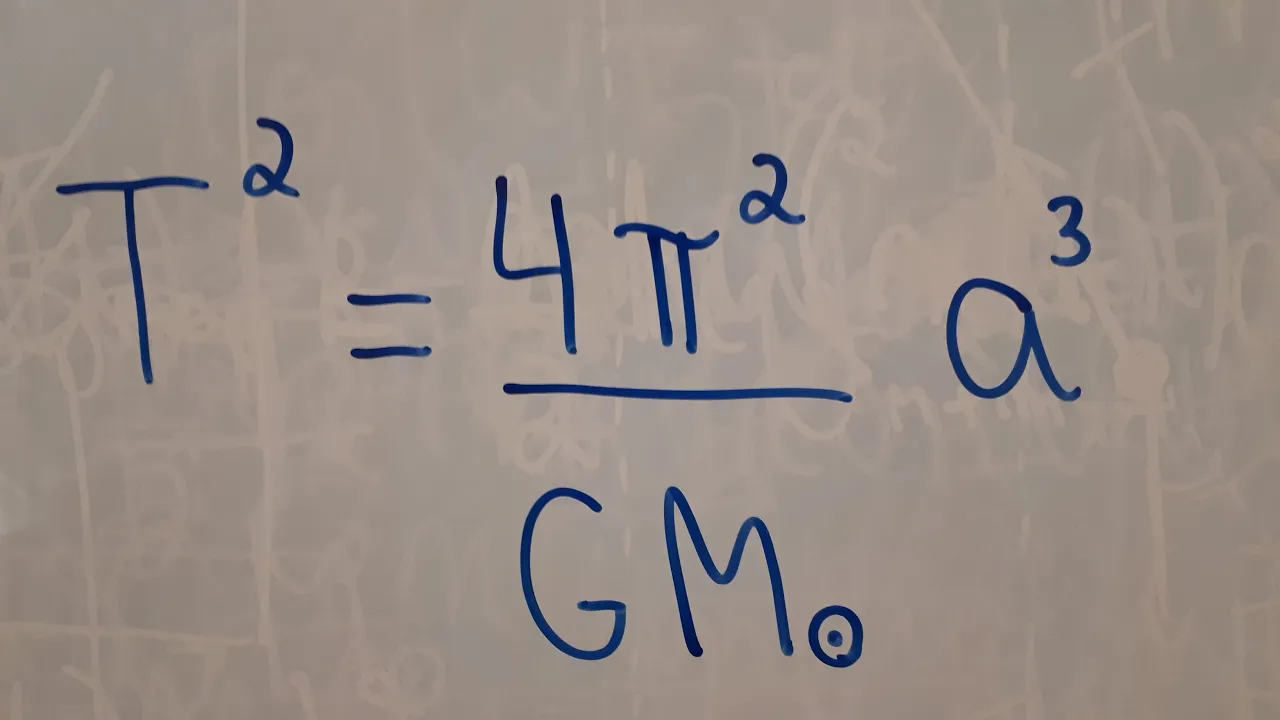 T² = 4π² / GM☉ a³